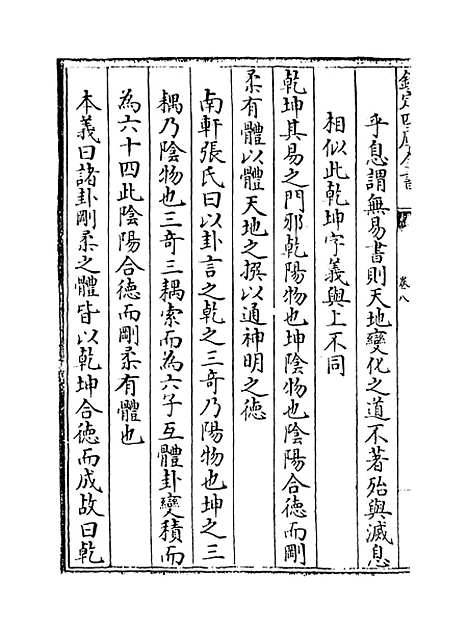 欽定四庫全書
卷八
乎息謂無易書則天地變化之道不著殆與滅息
相似此乾坤字義與上不同
乾坤其易之門邪乾陽物也坤陰物也陰陽合徳而剛
柔有體以體天地之撰以通神明之徳
南軒張氏曰以卦言之乾之三奇乃陽物也坤之三
耦乃陰物也三奇三耦索而為六子互體卦變積而
為六十四此陰陽合徳而剛柔有體也
本義曰諸卦剛柔之體皆以乾坤合徳而成故曰乾